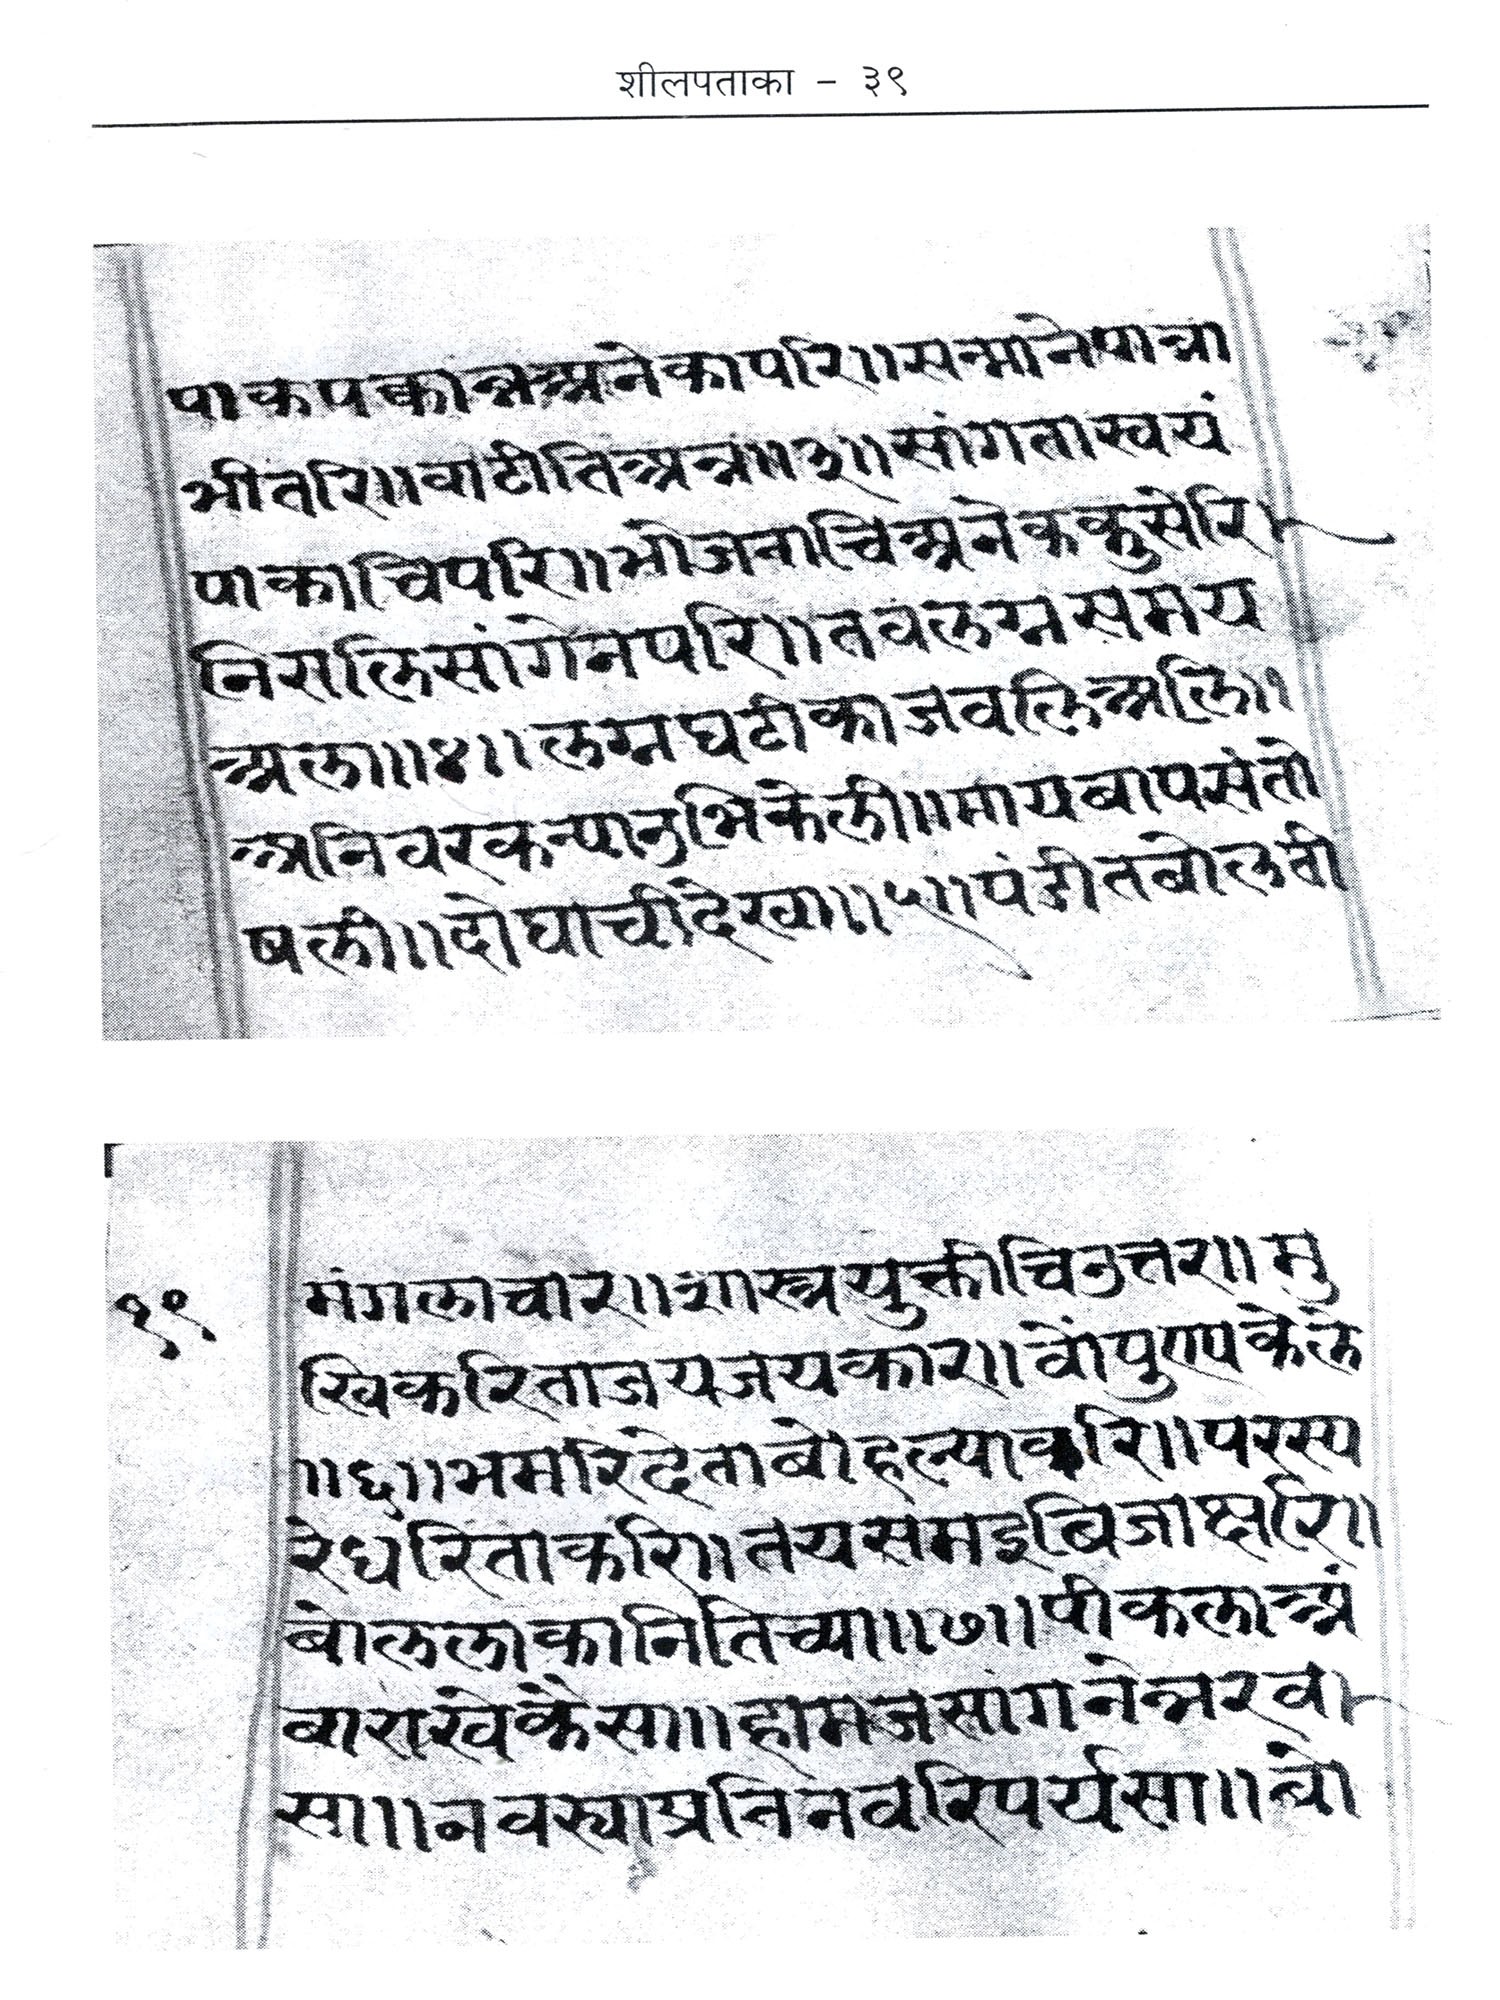 शीलपताका - ३९
पाकपक्वांन्नअनेकापरि॥सन्मानेपात्रा
भीतरि॥वाटीतिअन्न॥३॥सांगतास्वयं
पाकाचिपरि॥भोजनाचिअनेककुसेरि।
निरालिसांगेनपरि॥तवलग्नसमय
अला॥४॥लग्नघटीकाजवलिअलि॥
अनिवरकन्यानुभिकेली॥मायबापसंतो
षली॥दोघाचीदेखा॥५॥पंडीतबोलती
१९
मंगलाचार॥शास्त्रयुक्तीचिनुत्तर॥मु
खिकरिताजयजयकार॥वोंपुण्यकेले
॥६॥भमरिदेताबोहल्याकरि॥परस्प
रेधरिताकरि॥तयसमइबिजाक्षरि॥
बोललाकानितिच्या॥७॥पीकलाअं
बाराखेकैसा॥हामजसांगनेन्नरवा
सा॥नवस्याप्रतिनवरिपर्यसा॥वो